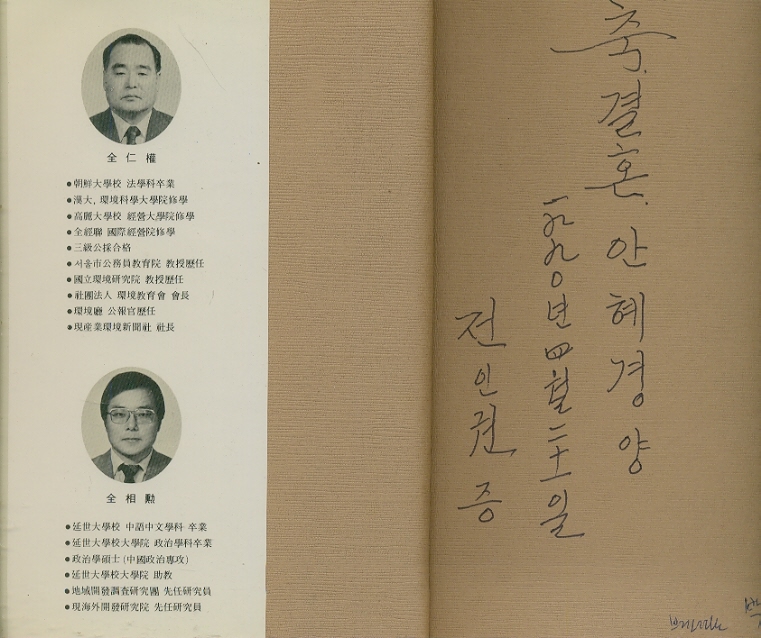 全仁權
●朝鮮大學校 法學科卒業
●漢大, 環境科學大學院修學
●高麗大學校 經營大學院修學
●全經聯 國際經營院修學
●三級公採合格
●서울市公務員教育院 教授歷任
●國立環境研究院 教授歷任
●社團法人 環境教育會 會長
●環境廳 公報官歷任
●現産業環境新聞社 社長
全相勳
●延世大學校 中語中文學科 卒業
●延世大學校大學院 政治學科卒業
●政治學碩士(中國政治專攻)
●延世大學校大學院 助教
●地域開發調査研究團 先任研究員
●現海外開發研究院 先任研究員
축. 결혼. 안혜경 양
一九九0년 四월 二十一일
전인권 증